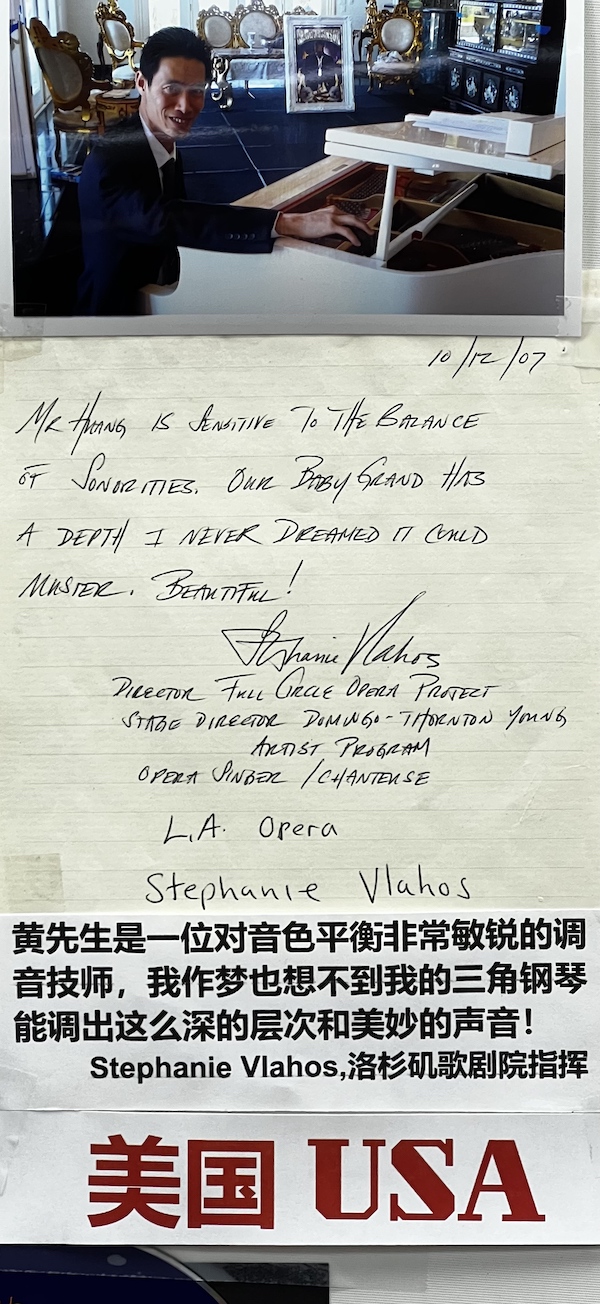 10/12/07
MR HUANG IS SENSITIVE TO THE BALANCE
OF SONORITIES. OUR BABY GRAND HAS
A DEPTH I NEVER DREAMED IT COULD
MUSTER. BEAUTIFUL!
Stephanie Vlahos
DIRECTOR FULL CIRCLE OPERA PROJECT
STAGE DIRECTOR DOMINGO-THORNTON YOUNG
ARTIST PROGRAM
OPERA SINGER / CHANTEUSE
L.A. Opera
Stephanie Vlahos
黄先生是一位对音色平衡非常敏锐的调
音技师，我作梦也想不到我的三角钢琴
能调出这么深的层次和美妙的声音！
Stephanie Vlahos,洛杉矶歌剧院指挥
美国 USA